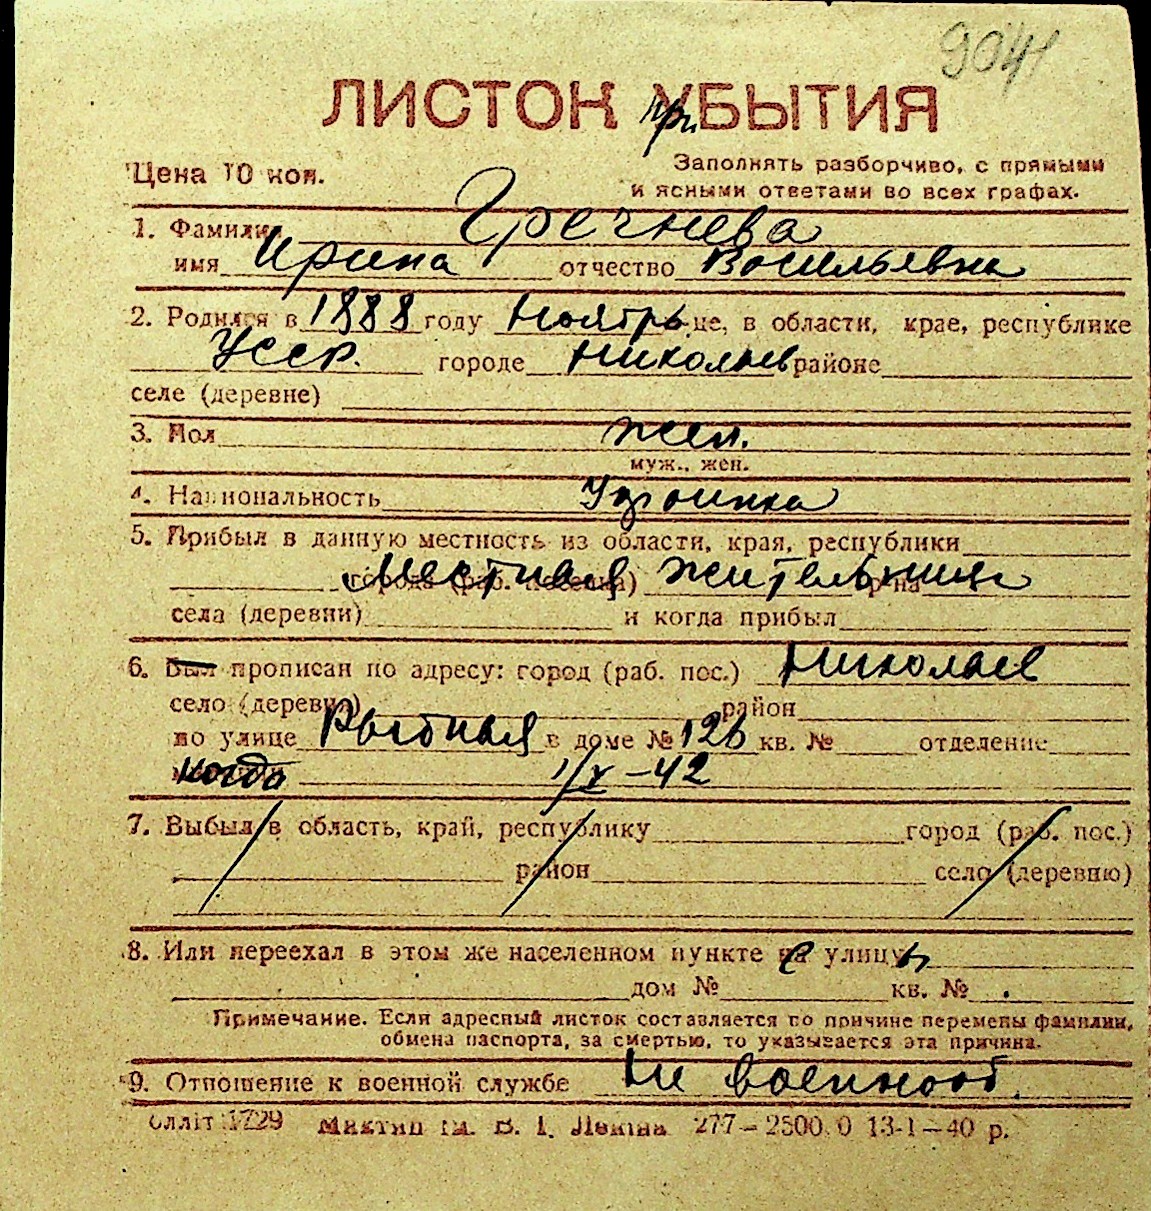 9041
ЛИСТОК при УБЫТИЯ
Цена 10 коп.
Заполнять разборчиво, с прямыми
и ясными ответами во всех графах.
1. Фамилия Гречнева
имя Ирина отчество Васильевна
2. Родился в 1888 году Ноябрь це, в области, крае, республике
Усср. городе Николаев районе
селе (деревне)
3. Пол жен.
муж., жен.
4. Национальность Украинка
5. Прибыл в данную местность из области, края, республики
города (раб. поселка) Местная жительница р-на
села (деревни) и когда прибыл
6. Был прописан по адресу: город (раб. пос.) Николаев
село (деревня) район
по улице Рыбная в доме № 126 кв. № отделение
когда 1/X-42
7. Выбыл в область, край, республику город (раб. пос.)
район село (деревню)
8. Или переехал в этом же населенном пункте с улицы
дом № кв. №
Примечание. Если адресный листок составляется по причине перемены фамилии,
обмена паспорта, за смертью, то указывается эта причина.
9. Отношение к военной службе Не военнооб.
1729 ім. В. І. Леніна 277—2500 0 13-1—40 р.